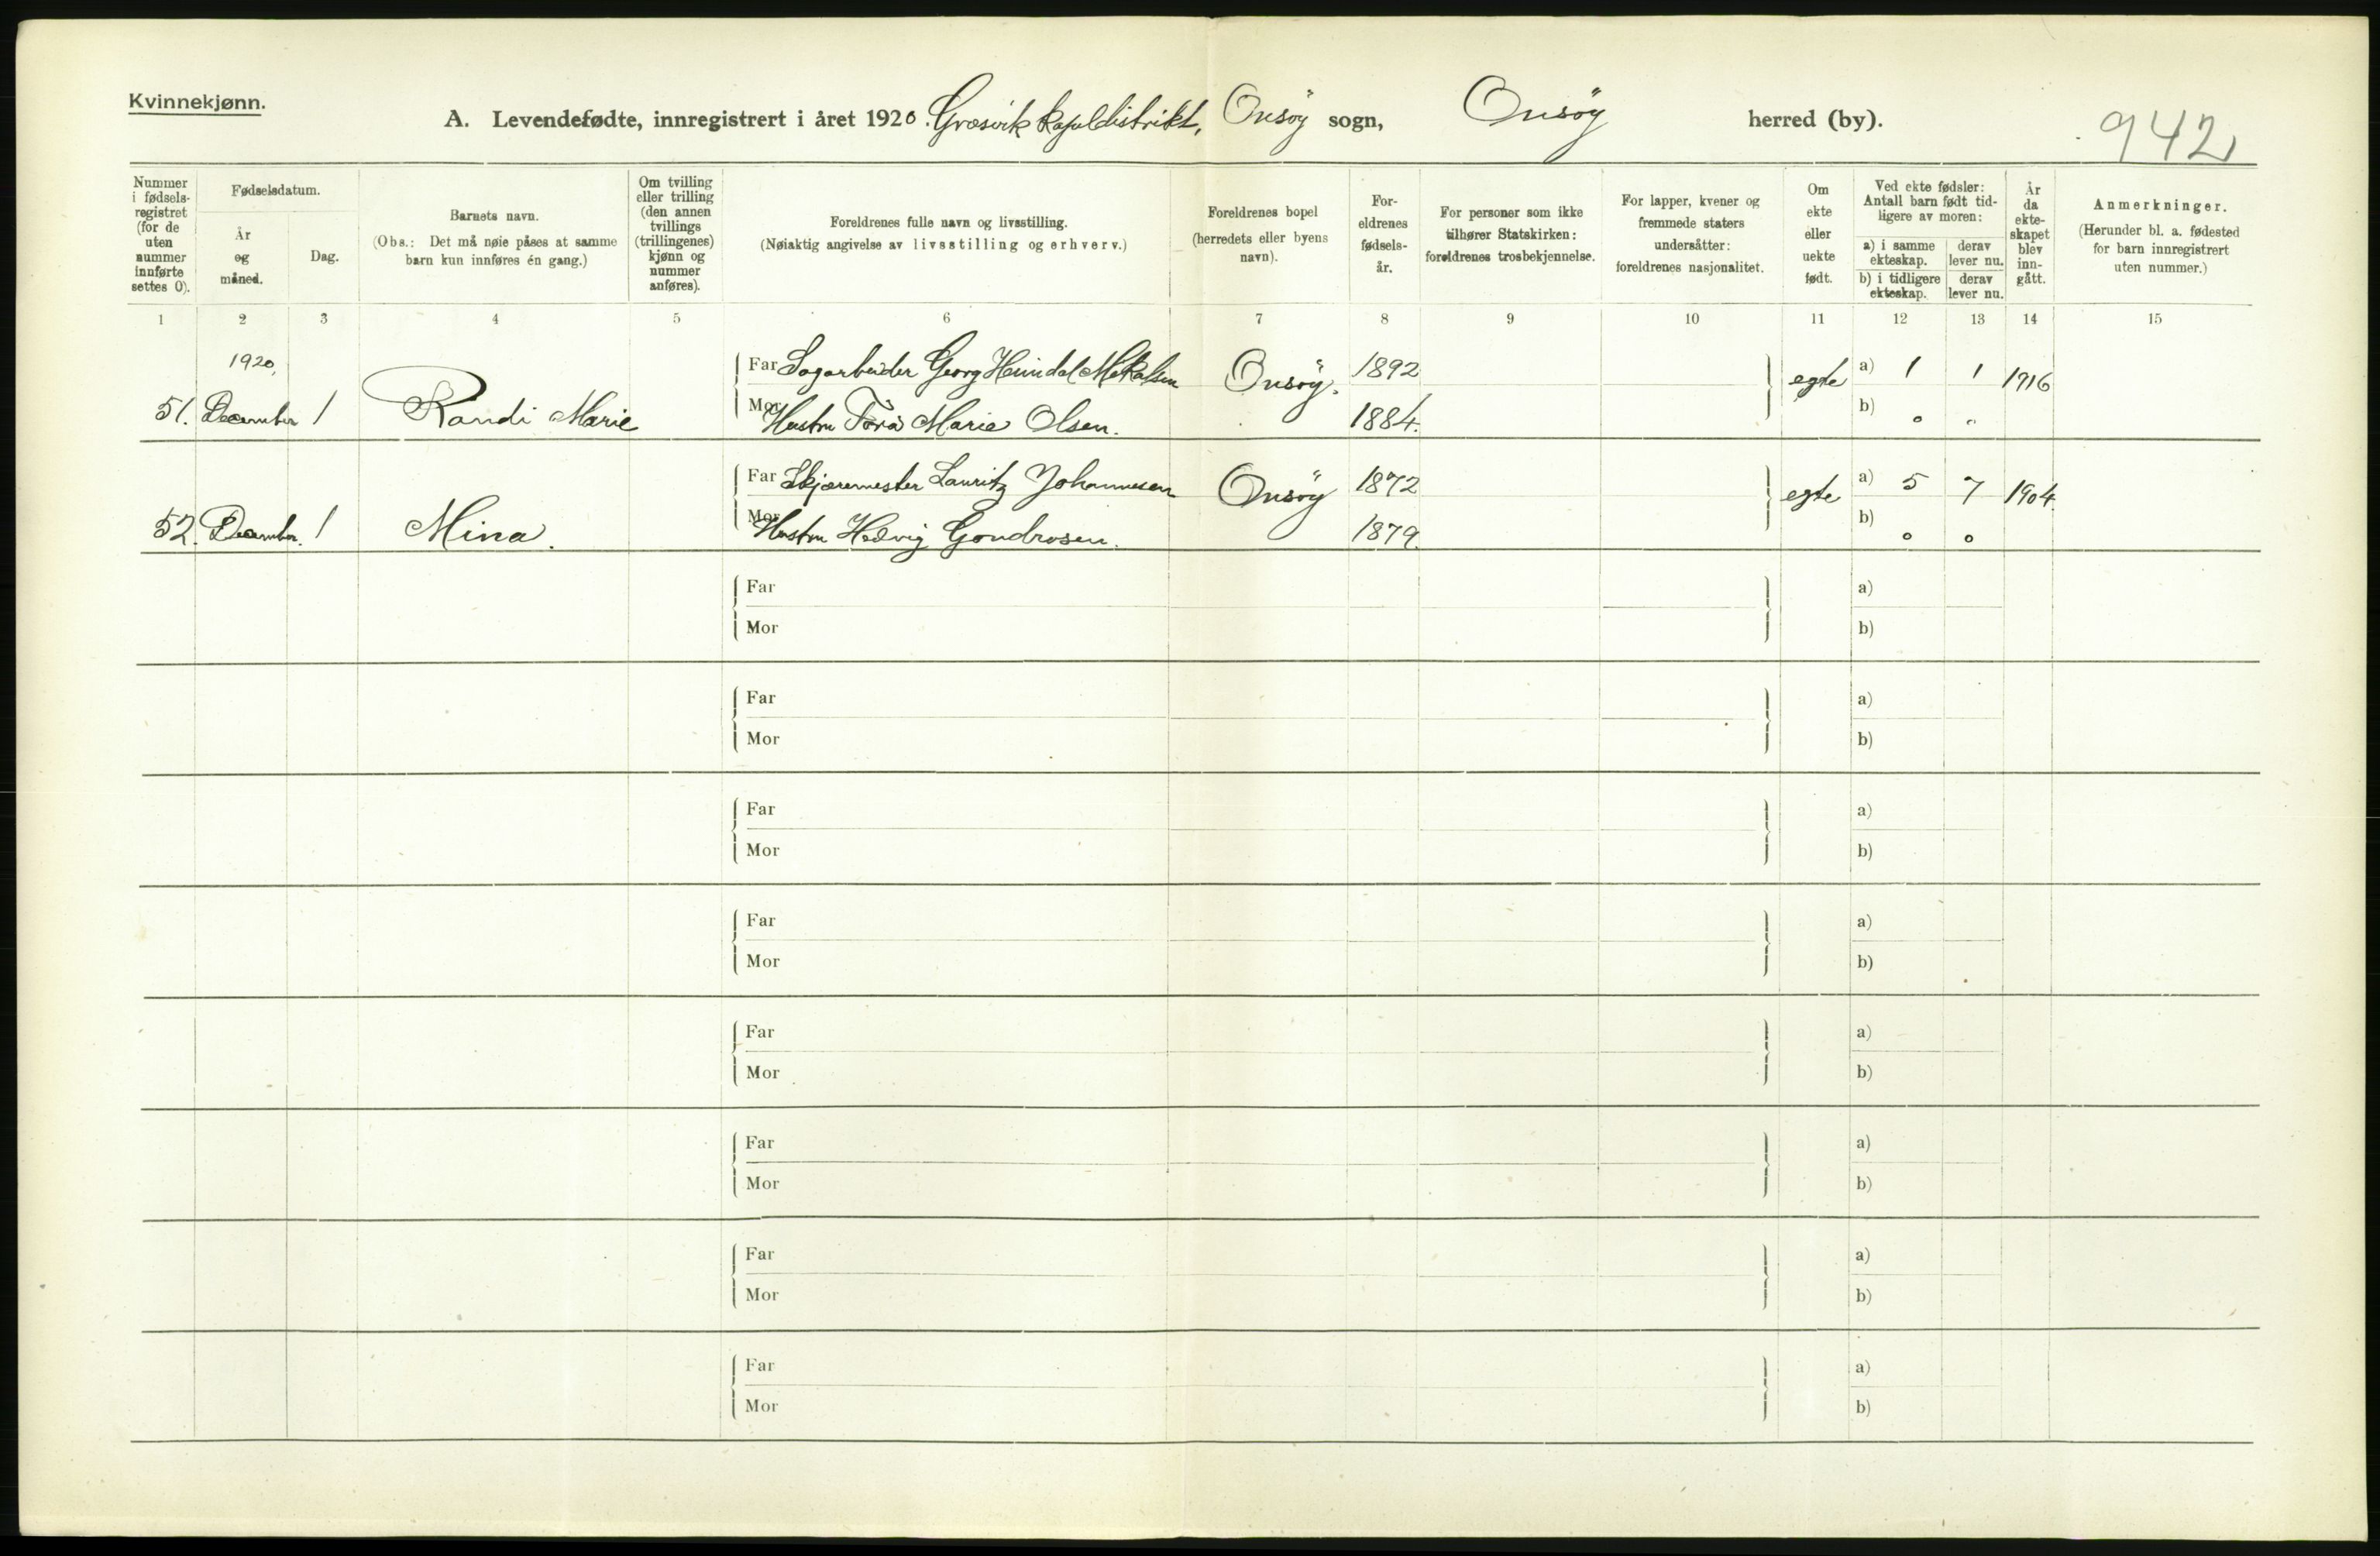 Kvinnekjønn.
A. Levendefødte, innregistrert i året 1920. Græsvik kapeldistrikt, Onsöy sogn, Onsöy herred (by). 942
Nummer i fødselsregistret (for de uten nummer innførte settes 0).
Fødselsdatum.
År og måned.
Dag.
Barnets navn.
(Obs.: Det må nøie påses at samme barn kun innføres én gang.)
Om tvilling eller trilling (den annen tvillings (trillingenes) kjønn og nummer anføres).
Foreldrenes fulle navn og livsstilling.
(Nøiaktig angivelse av livsstilling og erhverv.)
Foreldrenes bopel (herredets eller byens navn).
Foreldrenes fødselsår.
For personer som ikke tilhører Statskirken: foreldrenes trosbekjennelse.
For lapper, kvener og fremmede staters undersåtter: foreldrenes nasjonalitet.
Om ekte eller uekte født.
Ved ekte fødsler: Antall barn født tidligere av moren:
a) i samme ekteskap.
derav lever nu.
b) i tidligere ekteskap.
derav lever nu.
År da ekteskapet blev inngått.
Anmerkninger.
(Herunder bl. a. fødested for barn innregistrert uten nummer.)
1 2 3 4 5 6 7 8 9 10 11 12 13 14 15
1920.
Far Sagarbeider Georg Heimdal Mikalsen Onsöy. 1892 egte a) 1 1 1916
51. December 1 Randi Marie Mor Hustru Tora Marie Olsen. 1884. b) 0 0
Far Skjæremester Lauritz Johannesen Onsöy 1872 egte a) 5 7 1904.
52. December. 1 Mina. Mor Hustru Hedvig Gondrosen. 1879. b) 0 0
Far a)
Mor b)
Far a)
Mor b)
Far a)
Mor b)
Far a)
Mor b)
Far a)
Mor b)
Far a)
Mor b)
Far a)
Mor b)
Far a)
Mor b)